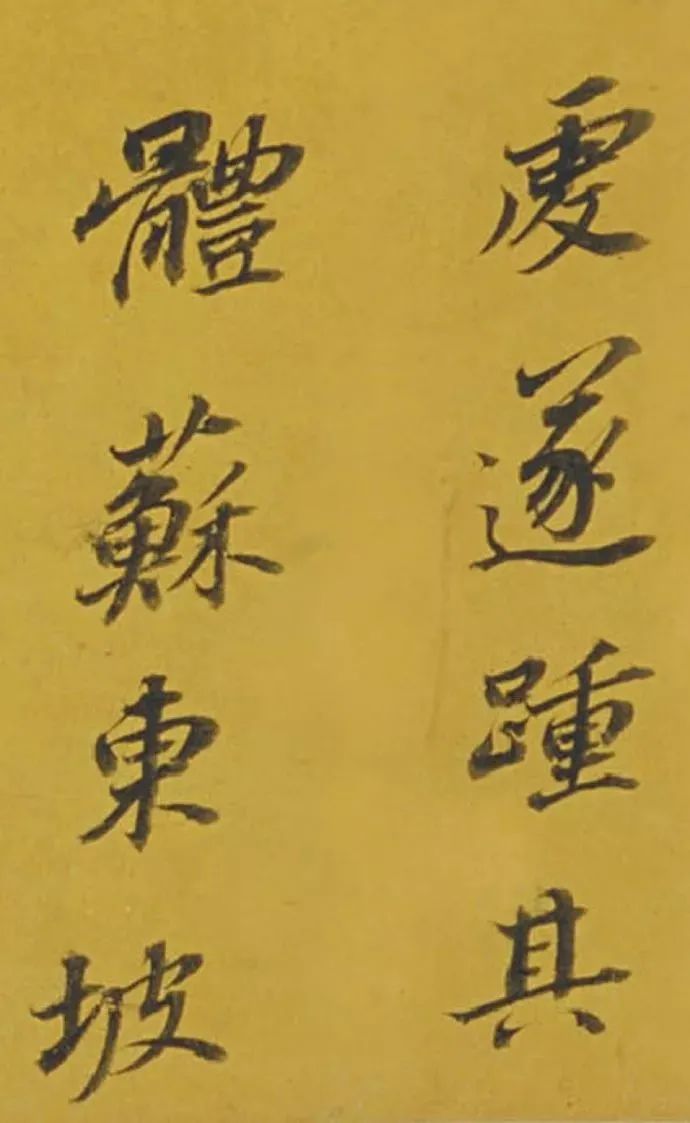 處遂踵其
體蘇東坡